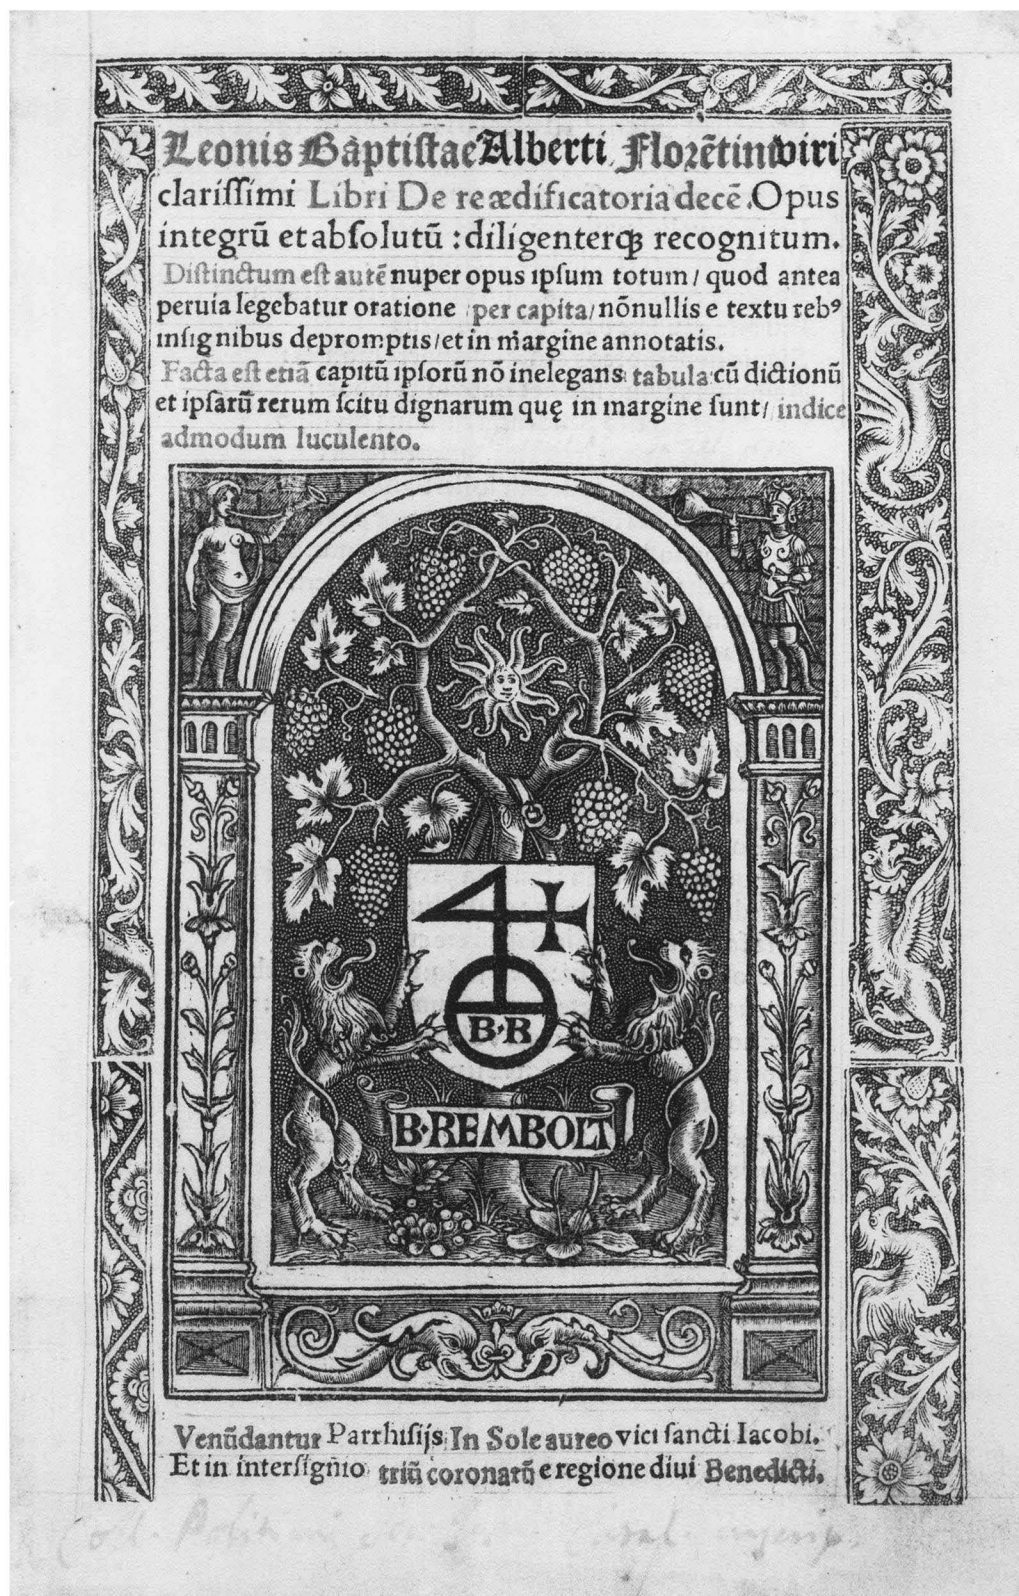 Leonis Baptistae Alberti Florẽtini viri
clarissimi Libri De re ædificatoria decẽ. Opus
integrũ et absolutũ : diligenterqꝫ recognitum.
Distinctum est autẽ nuper opus ipsum totum / quod antea
peruia legebatur oratione / per capita / nõnullis e textu rebꝰ
insignibus depromptis / et in margine annotatis.
Facta est etiã capitũ ipsorũ nõ inelegans tabula cũ dictionũ
et ipsarũ rerum scitu dignarum quę in margine sunt / indice
admodum luculento.
B·R
B·REMBOLT
Venũdantur Parrhisijs In Sole aureo vici sancti Iacobi.
Et in intersignio triũ coronarũ e regione diui Benedicti.